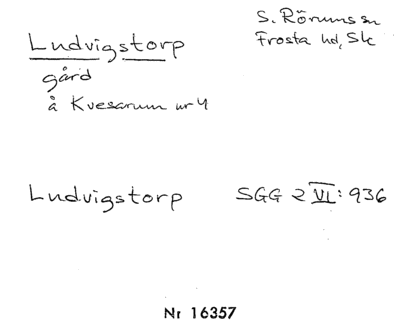 Ludvigstorp
S. Rörums sn
Frosta hd, Sk
gård
å Kvesarum nr 4
Ludvigstorp SGG 2 VI: 936
Nr 16357